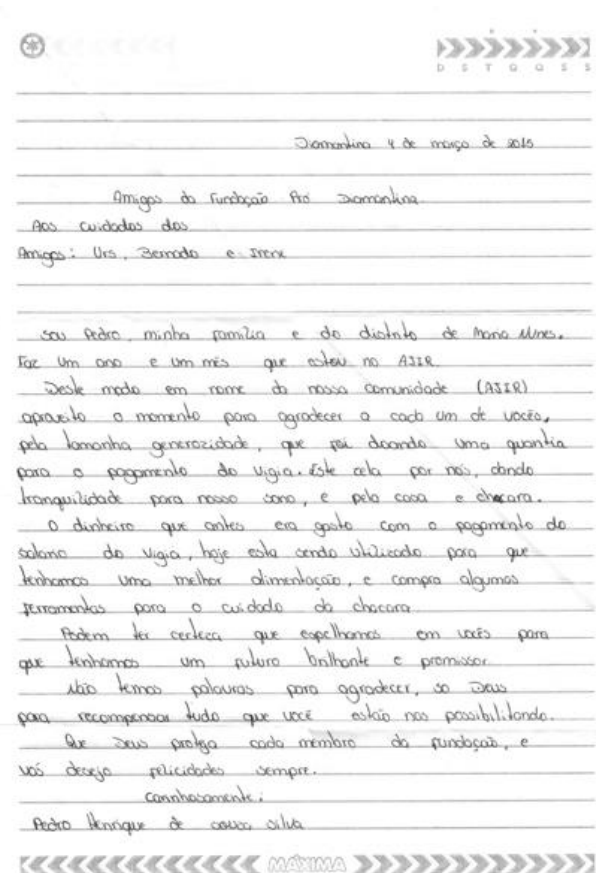 D S T Q Q S S
Diamantina 4 de março de 2015
Amigos da Fundação Pró Diamantina
Aos cuidados dos
Amigos: Urs, Bernado e Irene
sou Pedro, minha familia e do distrito de Maria Nunes.
Faz um ano e um mês que estou no AJIR.
Deste modo em nome da nossa comunidade (AJIR)
aproveito o momento para agradecer a cada um de vocês,
pela tamanha generozidade, que foi doando uma quantia
para o pagamento do vigia. Este cela por nós, dando
tranquilidade para nosso sono, e pela casa e chacara.
O dinheiro que antes era gasto com o pagamento do
salario do vigia, hoje esta sendo utilizado para que
tenhamos uma melhor alimentação, e compra algumas
ferramentas para o cuidado da chacara
Podem ter certeza que espelhamos em vocês para
que tenhamos um futuro brilhante e promissor.
Não temos palavras para agradecer, so Deus
para recompensar tudo que você estão nos possibilitando.
Que Deus proteja cada membro da fundação, e
vós desejo felicidades sempre.
Carinhosamente:
Pedro Henrique de souza silva
MÁXIMA